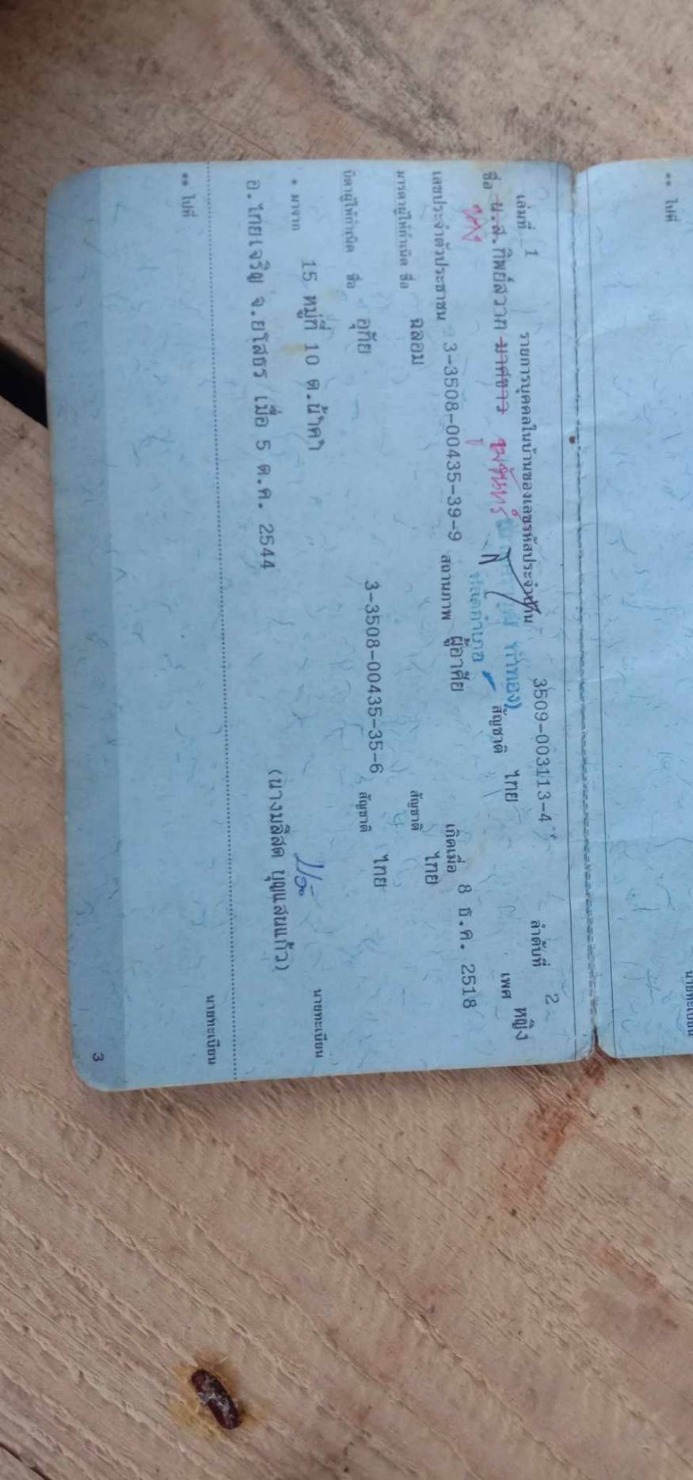 ** ไปที่
นายทะเบียน
เล่มที่ 1 รายการบุคคลในบ้านของเลขรหัสประจำบ้าน 3509-003113-4 ลำดับที่ 2
ชื่อ น.ส.ทิพย์สวาท มาศขาว สัญชาติ ไทย เพศ หญิง
นาง
เลขประจำตัวประชาชน 3-3508-00435-39-9 สถานภาพ ผู้อาศัย เกิดเมื่อ 8 ธ.ค. 2518
มารดาผู้ให้กำเนิด ชื่อ ฉลอม สัญชาติ ไทย
บิดาผู้ให้กำเนิด ชื่อ อุทัย 3-3508-00435-35-6 สัญชาติ ไทย
* มาจาก 15 หมู่ที่ 10 ต.น้ำคำ
นายทะเบียน
อ.ไทยเจริญ จ.ยโสธร เมื่อ 5 ต.ค. 2544 (นางมลิสด บุญแสนแก้ว)
** ไปที่
นายทะเบียน
3